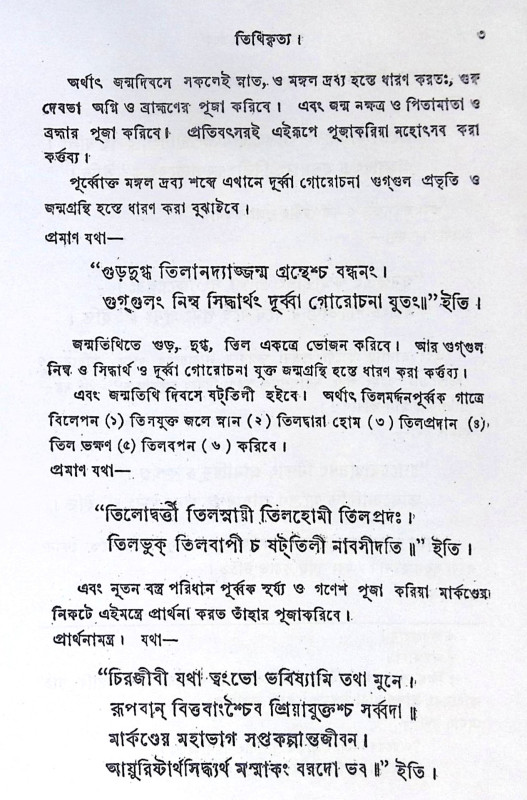 তিথিকৃত্য।
৩
অর্থাৎ জন্মদিবসে সকলেই স্নাত, ও মঙ্গল দ্রব্য হস্তে ধারণ করতঃ, গুরু
দেবতা অগ্নি ও ব্রাহ্মণের পূজা করিবে। এবং জন্ম নক্ষত্র ও পিতামাতা ও
ব্রহ্মার পূজা করিবে। প্রতিবৎসরই এইরূপে পূজাকরিয়া মহোৎসব করা
কর্ত্তব্য।
পূর্ব্বোক্ত মঙ্গল দ্রব্য শব্দে এখানে দূর্ব্বা গোরোচনা গুগ্গুল প্রভৃতি ও
জন্মগ্রন্থি হস্তে ধারণ করা বুঝাইবে।
প্রমাণ যথা—
“গুড়দুগ্ধ তিলানদ্যাজ্জন্ম গ্রন্থেশ্চ বন্ধনং।
গুগ্গুলং নিম্ব সিদ্ধার্থং দূর্ব্বা গোরোচনা যুতং॥” ইতি।
জন্মতিথিতে গুড়, দুগ্ধ, তিল একত্রে ভোজন করিবে। আর গুগ্গুল
নিম্ব ও সিদ্ধার্থ ও দূর্ব্বা গোরোচনা যুক্ত জন্মগ্রন্থি হস্তে ধারণ করা কর্ত্তব্য।
এবং জন্মতিথি দিবসে ষট্‌তিলী হইবে। অর্থাৎ তিলমর্দ্দনপূর্ব্বক গাত্রে
বিলেপন (১) তিলযুক্ত জলে স্নান (২) তিলদ্বারা হোম (৩) তিলপ্রদান (৪)
তিল ভক্ষণ (৫) তিলবপন (৬) করিবে।
প্রমাণ যথা—
“তিলোদ্বর্ত্তী তিলস্নায়ী তিলহোমী তিলপ্রদঃ।
তিলভুক্ তিলবাপী চ ষট্‌তিলী নাবসীদতি॥” ইতি।
এবং নূতন বস্ত্র পরিধান পূর্ব্বক সূর্য্য ও গণেশ পূজা করিয়া মার্কণ্ডেয়
নিকটে এইমন্ত্রে প্রার্থনা করত তাঁহার পূজাকরিবে।
প্রার্থনামন্ত্র। যথা—
“চিরজীবী যথা ত্বংভো ভবিষ্যামি তথা মুনে।
রূপবান্ বিত্তবাংশ্চৈব শ্রিয়াযুক্তশ্চ সর্ব্বদা॥
মার্কণ্ডেয় মহাভাগ সপ্তকল্পান্তজীবন।
আয়ুরিষ্টার্থসিদ্ধ্যর্থ মস্মাকং বরদো ভব॥” ইতি।